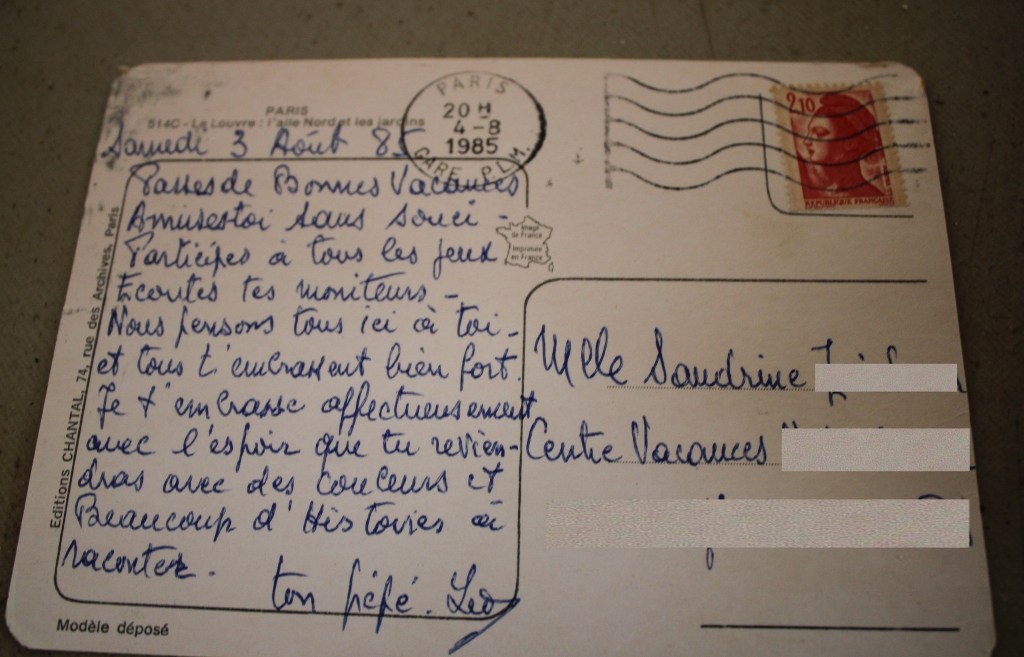 PARIS
514C - Le Louvre : l'aile Nord et les jardins
Samedi 3 Août 85
Passes de Bonnes Vacances
Amusestoi Sans Souci -
Participes à tous les jeux
Ecoutes tes moniteurs -
Nous pensons tous ici à toi -
et tous t'embrassent bien fort.
Je t'embrasse affectueusement
avec l'espoir que tu revien-
dras avec des couleurs et
Beaucoup d'Histoires à
raconter.
ton pépé. Léo
Editions CHANTAL, 74, rue des Archives, Paris
Modèle déposé
PARIS
20 H
4 - 8
1985
GARE P.L.M.
2,10
REPUBLIQUE FRANÇAISE
Image
de France
Imprimée
en France
Mlle Sandrine
Centre Vacances